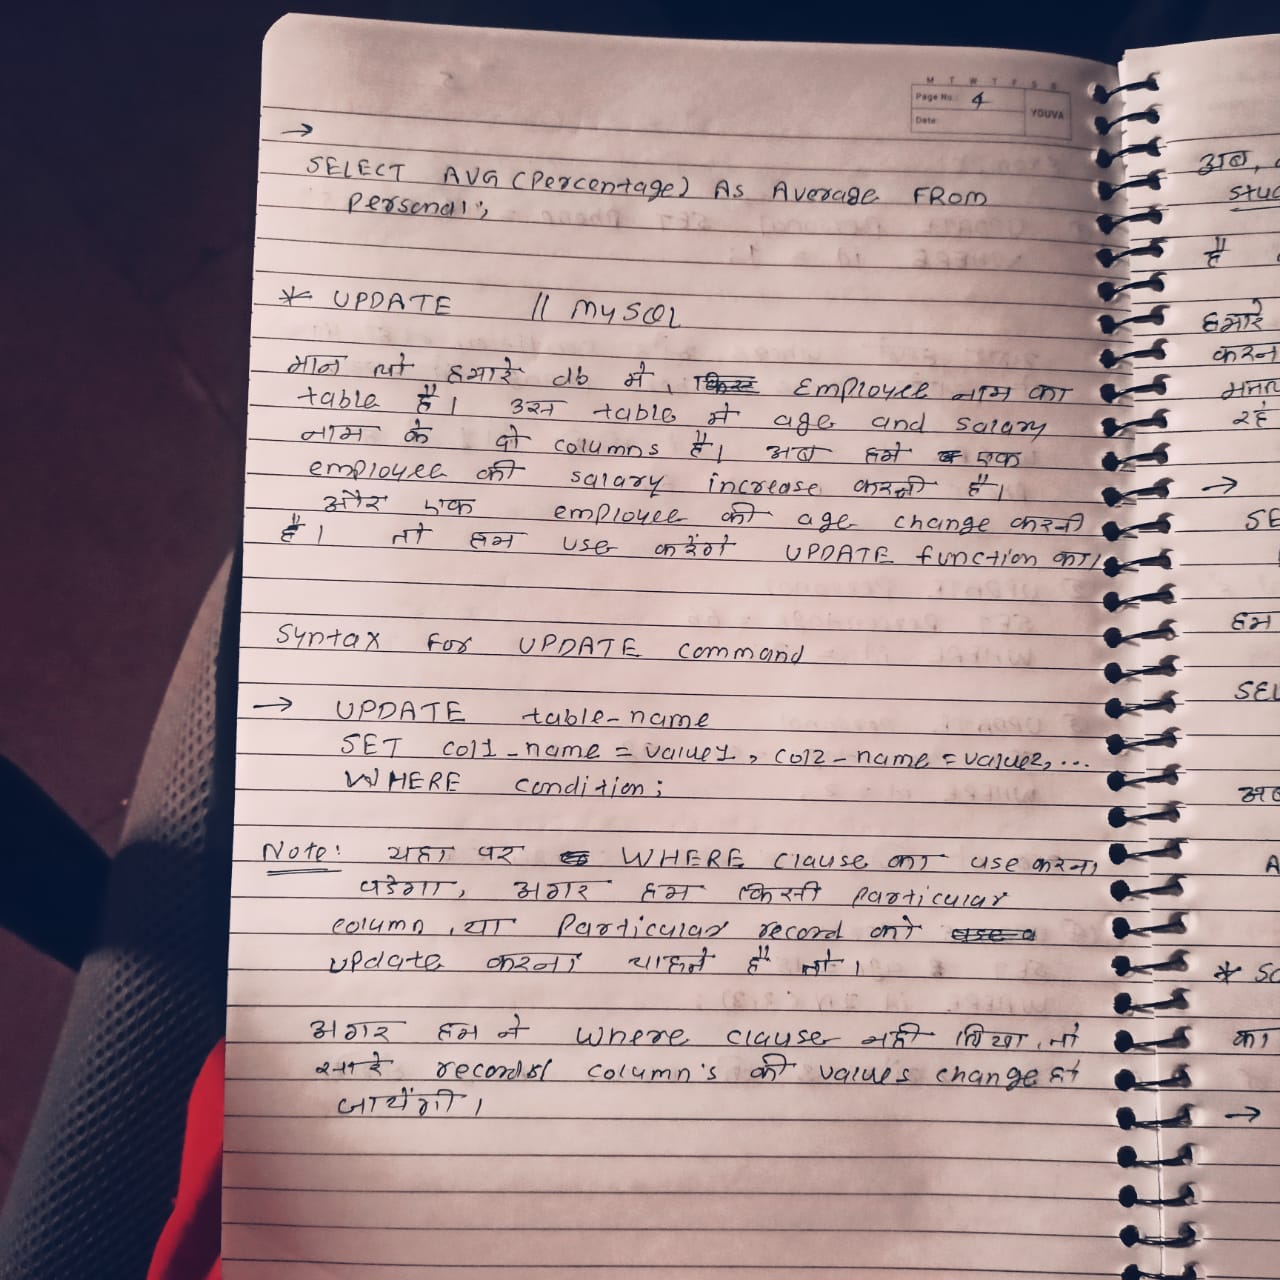 M T W T F S S
Page No.: 4
Date:
YOUVA
→
SELECT AVG (Percentage) As Average FROM
Personal ;
* UPDATE || MySQL
मान लो हमारे db में, Employee नाम का
table है। उस table में age and salary
नाम के दो columns है। अब हमे एक
employee की salary increase करनी है।
और एक employee की age change करनी
है। तो हम use करेंगे UPDATE function का।
Syntax For UPDATE command
→ UPDATE table-name
SET col1-name = value1, col2-name = value2, ...
WHERE condition ;
Note: यहा पर WHERE clause का use करना
पडेगा, अगर हम किसी particular
column, या Particular record को
update करना चाहते है तो।
अगर हम ने where clause नही लिखा, तो
सारे records column's की values change हो
जायेंगी।
अब,
है
हमारे
करन
रहे
→
SE
हम
SEL
अब
A
* SC
का
→